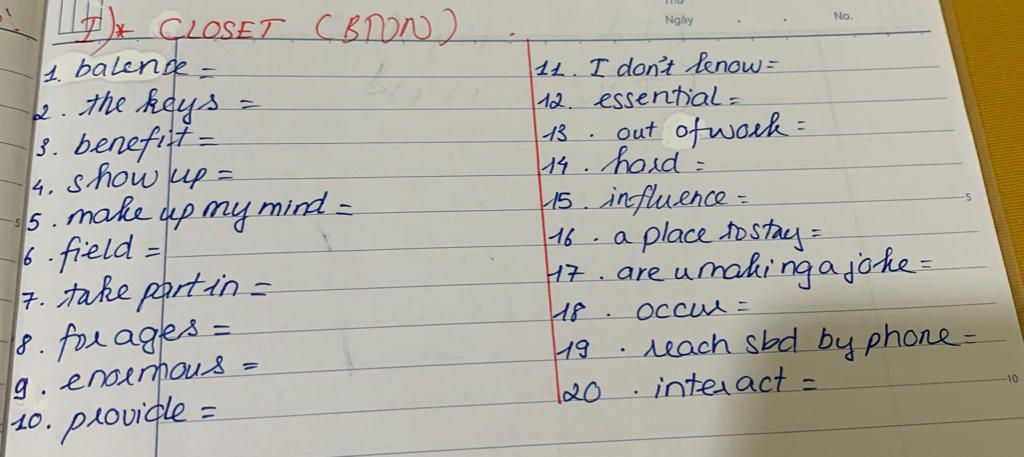 I)* CLOSET (BTDN)
Thứ
Ngày . . No.
1. balence =
2. the keys =
3. benefit =
4. show up =
5. make up my mind =
6. field =
7. take part in =
8. for ages =
9. enormous =
10. provide =
11. I don't know =
12. essential =
13. out of work =
14. hard =
15. influence =
16. a place to stay =
17. are u making a joke =
18. occur =
19. reach sbd by phone =
20. interact =
5
5
10